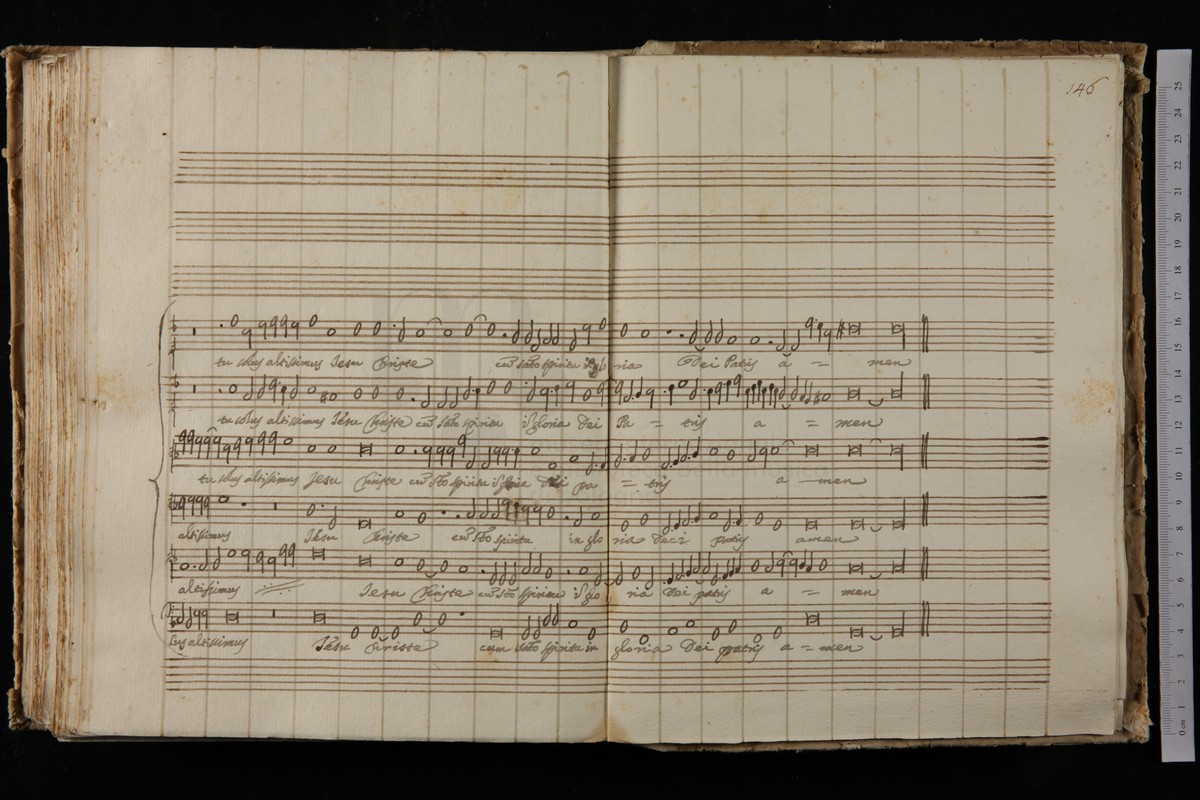 146
tu solus altissimus Jesu Christe cũ Sãto spiritu ĩ glo ria Dei Patris a = men
tu solus altissimus Jesu Christe cũ Sãto spiritu ĩ gloria Dei Pa = tris a = men
tu solus altissimus Jesu Christe cũ Sto spiritu ĩ gloria Dei pa = tris a men
altissimus Jesu Christe cũ Sto spiritu in glo ria Dei patris amen
altissimus Jesu Christe cũ Sto spiritu ĩ glo ria Dei patris a = men
lus altissimus Jesu Christe cum Sãto spiritu in gloria Dei patris a = men